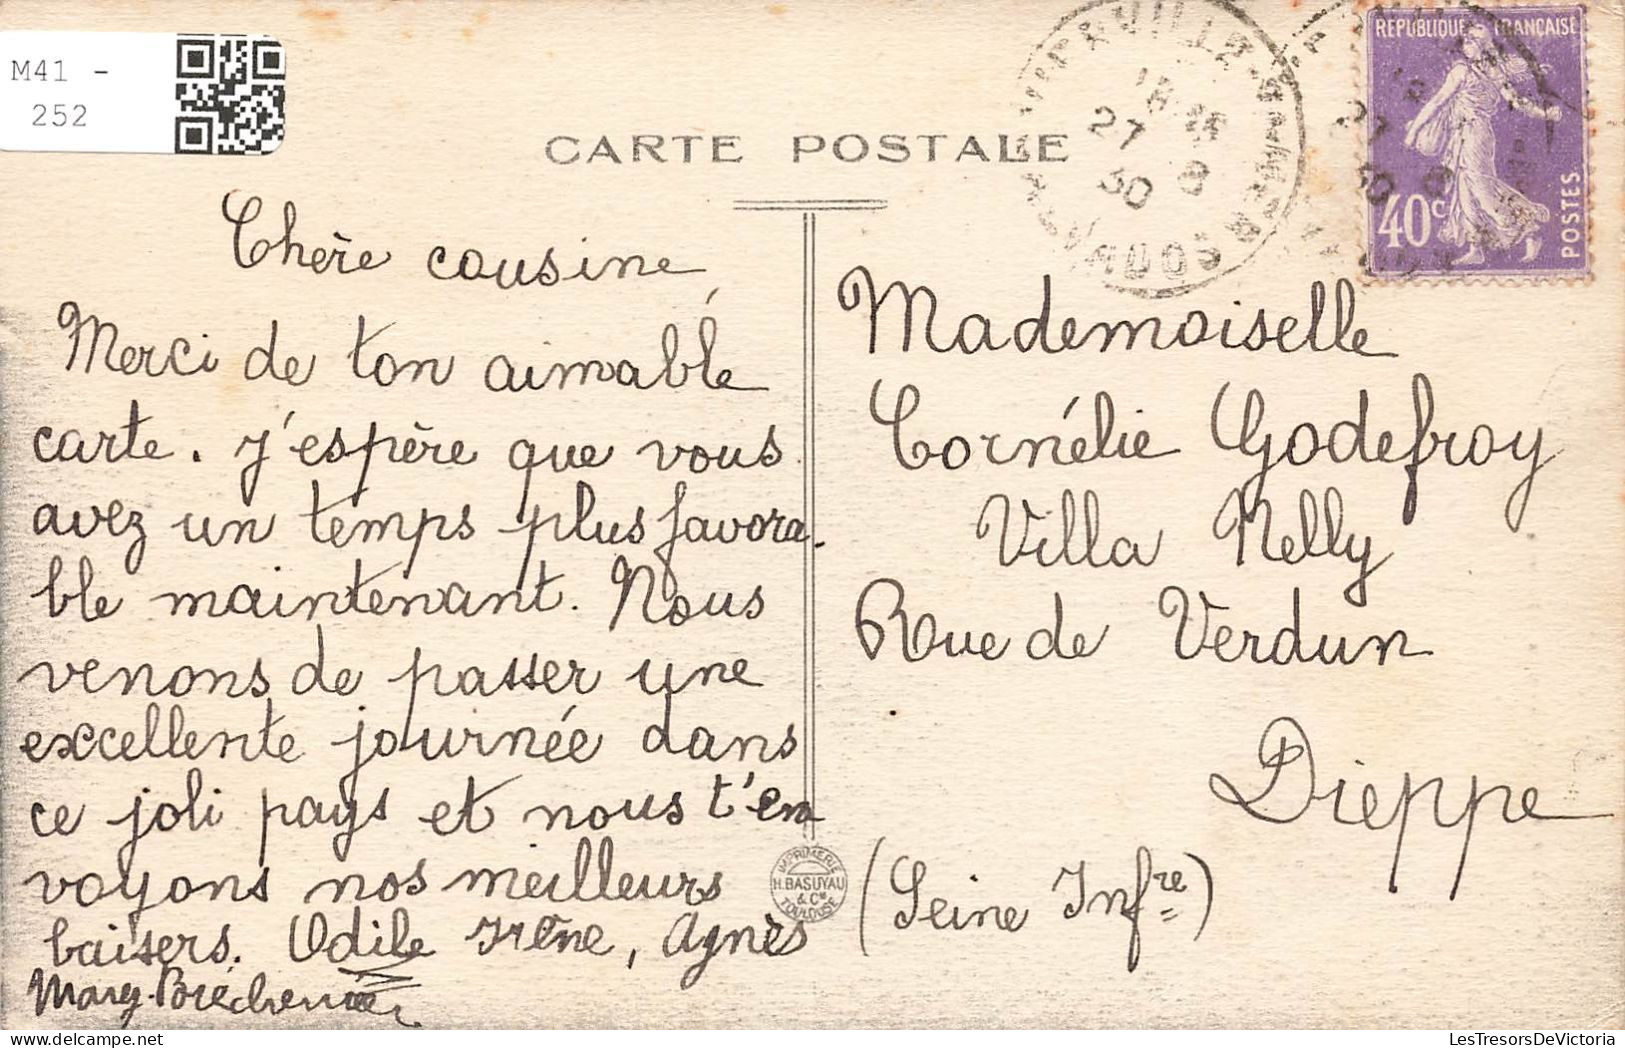 M41 -
252
CARTE POSTALE
REPUBLIQUE FRANÇAISE
40c
POSTES
27
30 8
Chère cousine,
Merci de ton aimable
carte. J'espère que vous
avez un temps plus favora-
ble maintenant. Nous
venons de passer une
excellente journée dans
ce joli pays et nous t'en
voyons nos meilleurs
baisers. Odile Irène, Agnès
Mary
Mademoiselle
Cornélie Godefroy
Villa Nelly
Rue de Verdun
Dieppe
(Seine Infre)
IMPRIMERIE
H. BASUYAU
& Cie
TOULOUSE
LesTresorsDeVictoria